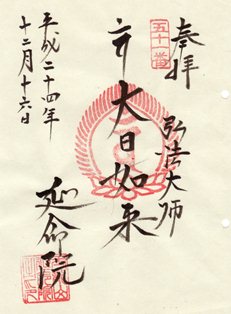 奉拝
五十一番
弘法大師
大日如来
延命院
平成二十四年
十二月十六日